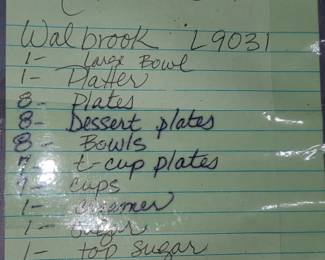 Walbrook L9031
1- Large Bowl
1- Platter
8- Plates
8- Dessert plates
8- Bowls
7- t-cup plates
7- cups
1- creamer
1- sugar
1- top sugar